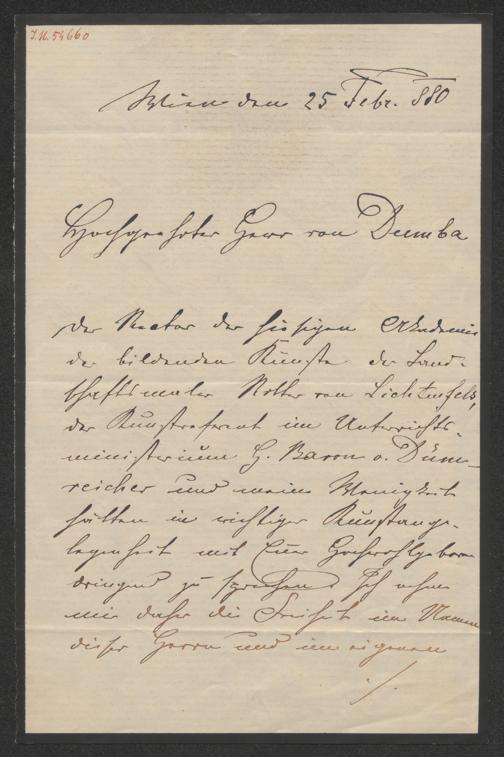 J.N. 54660
Wien den 25 Febr. 880
Hochgeehrter Herr von Dumba
Der Rector der hiesigen Akademie
der bildenden Künste der Land-
schaftsmaler Ritter von Lichtenfels,
der Kunstreferent im Unterrichts-
ministerium H. Baron v. Dum-
reicher und meine Wenigkeit
hätten in wichtiger Kunstange-
legenheit mit Euer Hochwohlgeboren
dringend zu sprechen. Ich nehme
mir daher die Freiheit im Namen
dieser Herrn und im eigenen
./.